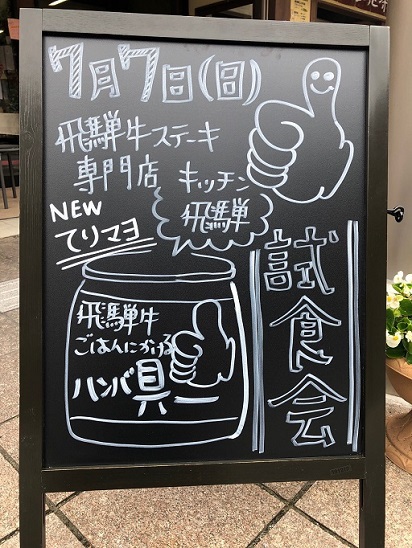 7月7日(日)
飛騨牛ステーキ
専門店 キッチン
飛騨
NEW
てりマヨ
試食会
飛騨牛
ごはんにかける
ハンバ具ー